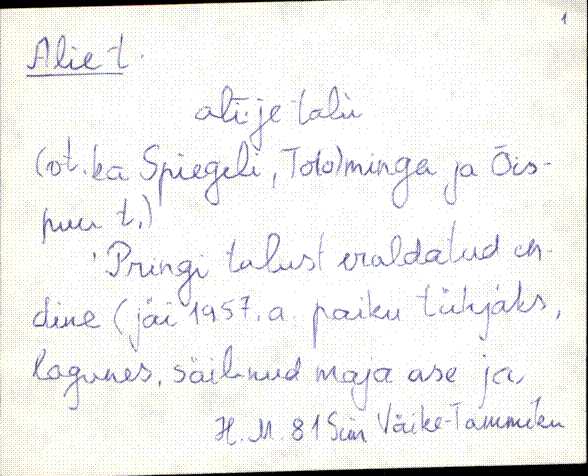 1
Alie t.
ali·je talu
(vt. ka Spiegeli, To(o)minga ja Õis-
puu t.)
Pringi talust eraldatud en-
dine (jäi 1957. a. paiku tühjaks,
lagunes, säilinud maja ase ja
H. M. 81 Sim Väike-Tammiku